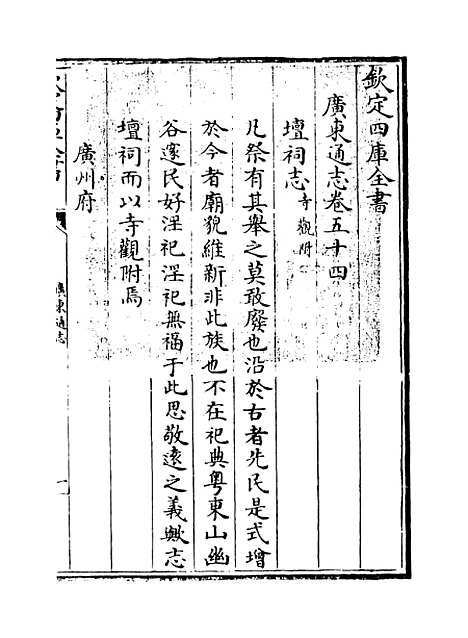 欽定四庫全書
廣東通志卷五十四
壇祠志寺觀附
凡祭有其舉之莫敢廢也沿於古者先民是式增
於今者廟貌維新非此族也不在祀典粤東山幽
谷邃民好淫祀淫祀無福于此思敬遠之義歟志
壇祠而以寺觀附焉
廣州府
廣東通志
一